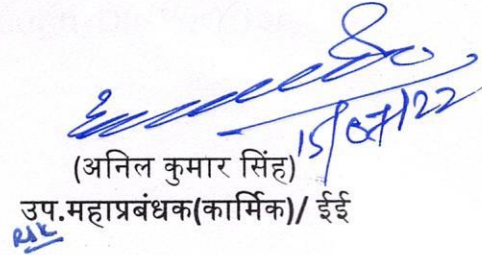 15/07/22
(अनिल कुमार सिंह)
उप.महाप्रबंधक(कार्मिक)/ ईई